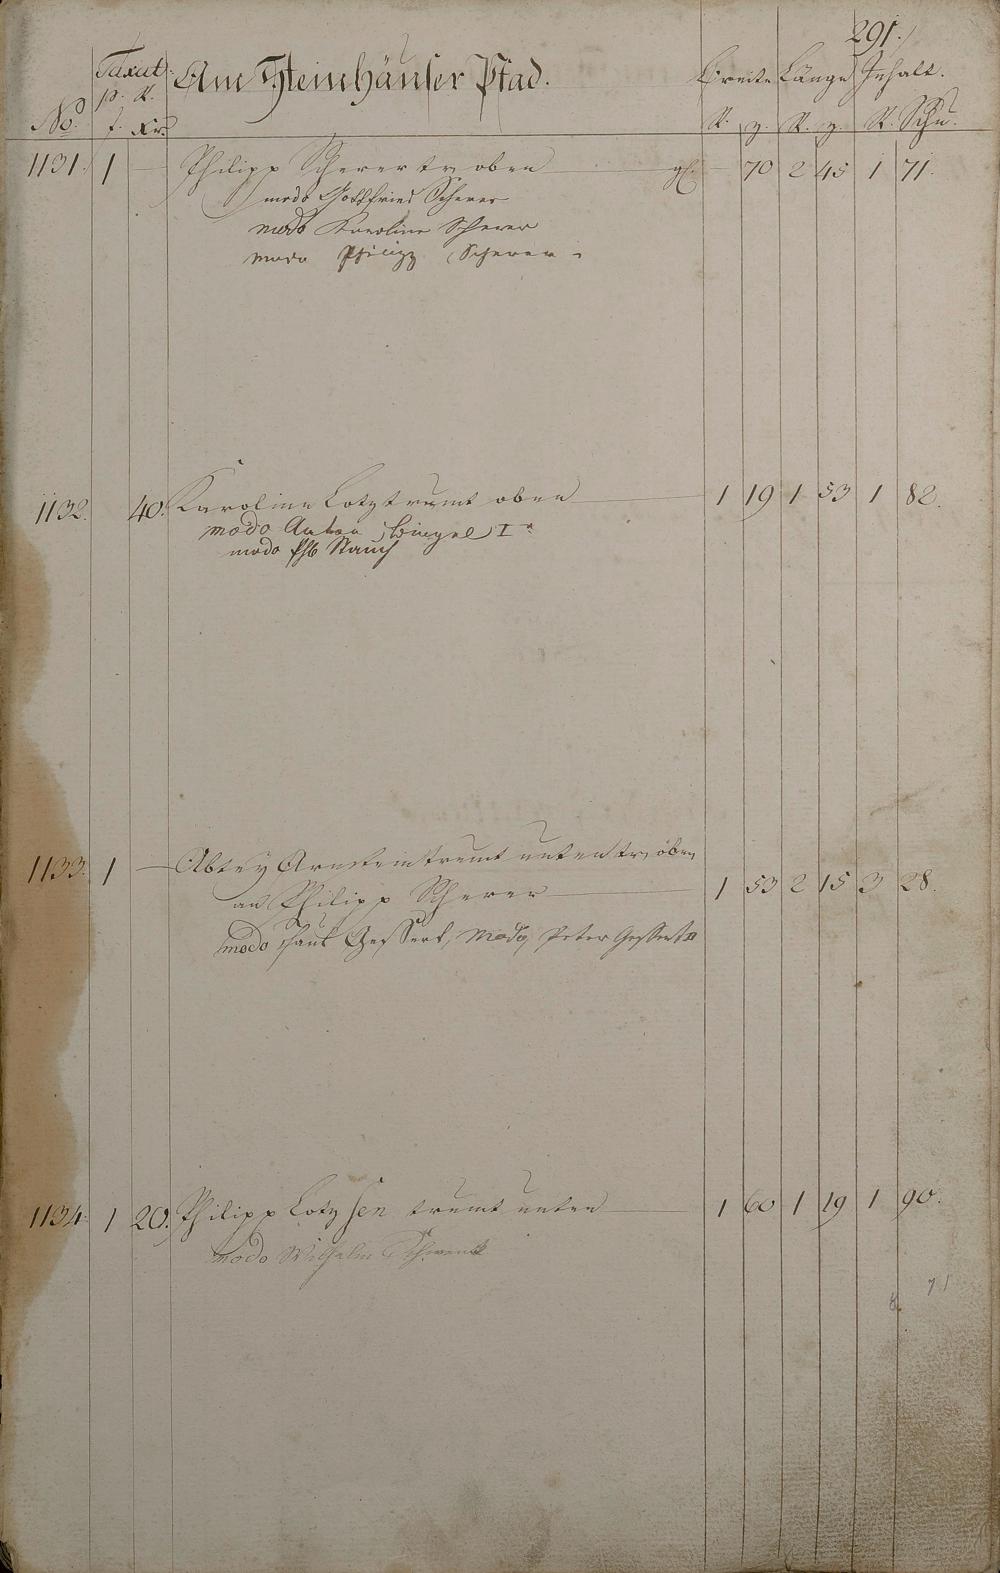 291.
Taxat: Am Steinhäuser Pfad. Breite Länge Inhalt.
p. R.
No. f. Xr. R. z. R. z. R. Schu.
1131. 1 — Philipp Scherer tr. oben — gl. — 70 2 45 1 71.
modo Gottfried Scherer
modo Karoline Scherer
modo Philipp Scherer
1132. 40. Karoline Lotz trumt oben — 1 19 1 53 1 82.
modo Anton Bingel I r
modo Phb Stauch
1133. 1 — Abtey Arnstein trumt unten tr. oben
an Philipp Scherer — 1 53 2 15 3 28.
modo Paul Gessert, modo Peter Gessert II
1134. 1 20. Philipp Lotz sen trumt unten — 1 60 1 19 1 90.
modo Wilhelm Schwenk
8. 71